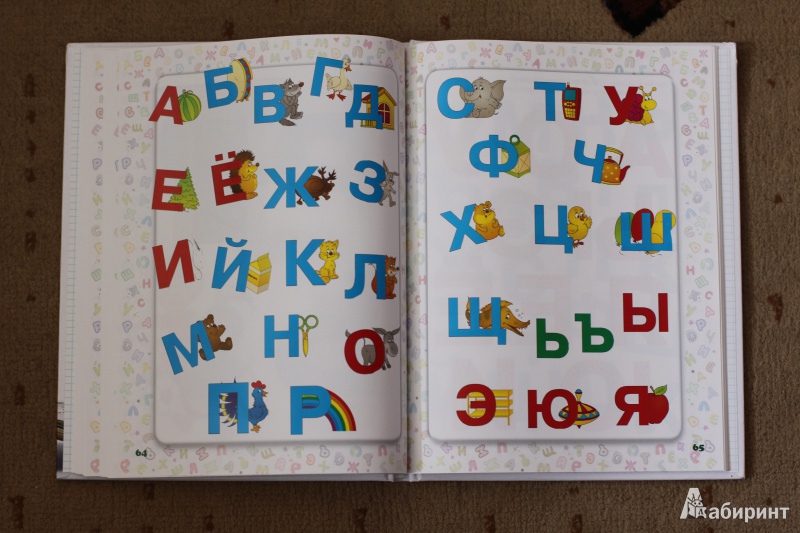 А Б В Г Д
Е Ё Ж З
И Й К Л
М Н О
П Р
64
С Т У
Ф Ч
Х Ц Ш
Щ Ь Ъ Ы
Э Ю Я
65
Лабиринт